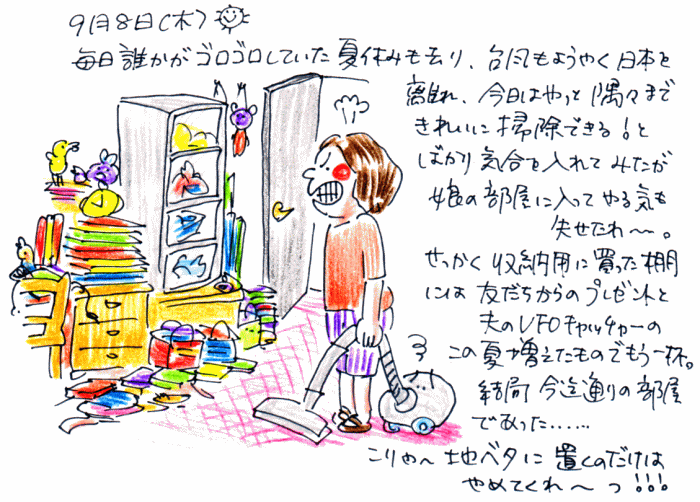 9月8日(木)
毎日誰かがゴロゴロしていた夏休みも去り、台風もようやく日本を
離れ、今日はやっと隅々まで
きれいに掃除できる!と
ばかり気合を入れてみたが
娘の部屋に入ってやる気も
失せたわ〜。
せっかく収納用に買った棚
には友だちからのプレゼントと
夫のUFOキャッチャーの
この夏増えたものでもう一杯。
結局今迄通りの部屋
であった......
こりゃ〜地ベタに置くのだけは
やめてくれ〜っ!!!